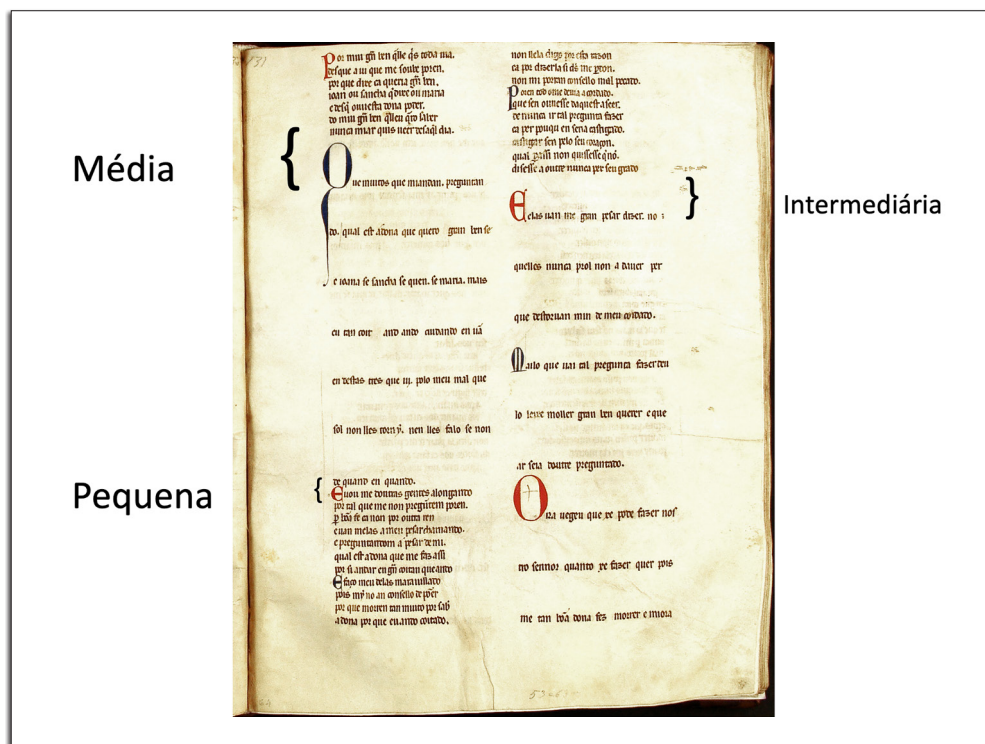 Média
Pequena
Intermediária
{
{
}
Por miu gñ ben q̃lle q̃s toda uia.
desque a ui que me soube poren.
por que dire ca queria gñ ben.
ioan ou sancha q̃ dire ou maria
e desq̃ ouuesta dona poder.
do miu gñ ben q̃lleu q̃ro saber
nunca miar quis ueer desaq̃l dia.
Que muitos que miandan. preguntan
do. qual est a dona que quero gran ben se
e ioana se sancha se quen. se maria. mais
eu tan coit and ando cuidando en uã
en destas tres que ui. polo meu mal que
sol non lles torn y. nen lles falo se non
de quand en quando.
E uou me doutras gentes alongando
por tal que me non pregũtem poren.
ꝑ bõa fe ca non por outra ren
e uan melas a meu pesar chamando.
e preguntandom a pesar de mi.
qual est a dona que me faz assi
por si andar en gñ coitan que ando
E faço meu delas marauillado
pois mỹ no an consello de põer
por que morren tan muito por sab̃
a dona por que eu ando coitado.
non llela digo por esta razon
ca por dizerla si d̃s me pdon.
non mi porran consello mal pecado.
Poren tod ome deuia acordado.
que sen ouuesse daquest a seer.
de nunca ir tal pregunta fazer
ca per pouqu en seria castigado.
castigar sen pelo seu coraçon.
qual ꝑassi non quisesse q̃ nõ.
disesse a outre nunca per seu grado
E elas uan me gran pesar dizer. no
quelles nunca prol non a dauer per
que destoruan min de meu coidado.
Mailo que uai tal pregunta fazer deu
lo leixe moller gran ben querer e que
ar seia doutre preguntado.
Ora uegeu que xe pode fazer nos
tro sennor quanto xe fazer quer pois
me tan bõa dona fez morrer e miora